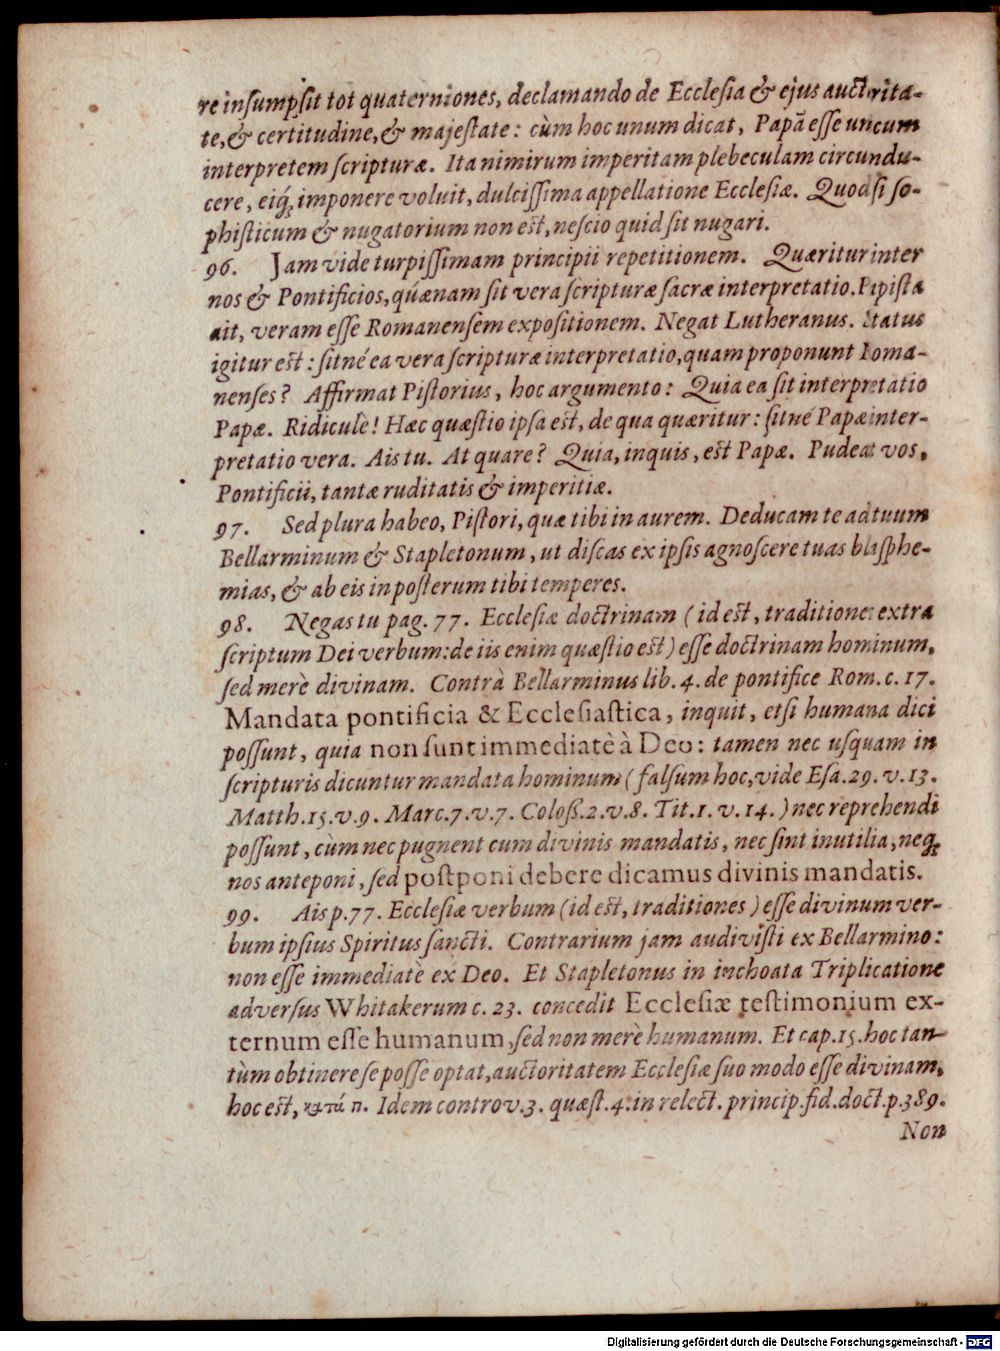 re insumpſit tot quaterniones, declamando de Ecclesia & ejus auctorita-
te, & certitudine, & majeſtate: cùm hoc unum dicat, Papã eſſe unicum
interpretem ſcripturæ. Ita nimirum imperitam plebeculam circundu-
cere, eiq́; imponere voluit, dulciſſima appellatione Ecclesiæ. Quod ſi ſo-
phiſticum & nugatorium non eſt, neſcio quid ſit nugari.
96. Jam vide turpiſſimam principii repetitionem. Quæritur inter
nos & Pontificios, quænam ſit vera ſcripturæ ſacræ interpretatio. Papiſta
ait, veram eſſe Romanenſem expoſitionem. Negat Lutheranus. Status
igitur eſt: ſitné ea vera ſcripturæ interpretatio, quam proponunt Roma-
nenſes? Affirmat Piſtorius, hoc argumento: Quia ea ſit interpretatio
Papæ. Ridiculè! Hæc quæſtio ipſa eſt, de qua quæritur: ſitné Papæ inter-
pretatio vera. Ais tu. At quare? Quia, inquis, eſt Papæ. Pudeat vos,
Pontificii, tantæ ruditatis & imperitiæ.
97. Sed plura habeo, Piſtori, quæ tibi in aurem. Deducam te ad tuum
Bellarminum & Stapletonum, ut diſcas ex ipſis agnoſcere tuas blaſphe-
mias, & ab eis in poſterum tibi temperes.
98. Negas tu pag. 77. Ecclesiæ doctrinam (id eſt, traditiones extra
ſcriptum Dei verbum: de iis enim quæſtio eſt) eſſe doctrinam hominum,
ſed merè divinam. Contrà Bellarminus lib. 4. de pontifice Rom. c. 17.
Mandata pontificia & Eccleſiaſtica, inquit, etſi humana dici
poſſunt, quia non ſunt immediatè à Deo: tamen nec uſquam in
ſcripturis dicuntur mandata hominum (falſum hoc, vide Eſa. 29. v. 13.
Matth. 15. v. 9. Marc. 7. v. 7. Coloß. 2. v. 8. Tit. 1. v. 14.) nec reprehendi
poſſunt, cùm nec pugnent cum divinis mandatis, nec ſint inutilia, neq;
nos anteponi, ſed poſtponi debere dicamus divinis mandatis.
99. Ais p. 77. Ecclesiæ verbum (id eſt, traditiones) eſſe divinum ver-
bum ipſius Spiritus ſancti. Contrarium jam audiviſti ex Bellarmino:
non eſſe immediatè ex Deo. Et Stapletonus in inchoata Triplicatione
adverſus Whitakerum c. 23. concedit Eccleſiæ teſtimonium ex-
ternum eſſe humanum, ſed non merè humanum. Et cap. 15. hoc tan-
tùm obtinere ſe poſſe optat, auctoritatem Ecclesiæ ſuo modo eſſe divinam,
hoc eſt, κατά π. Idem controv. 3. quæſt. 4. in relect. princip. fid. doct. p. 389.
Non
Digitalisierung gefördert durch die Deutsche Forschungsgemeinschaft - DFG